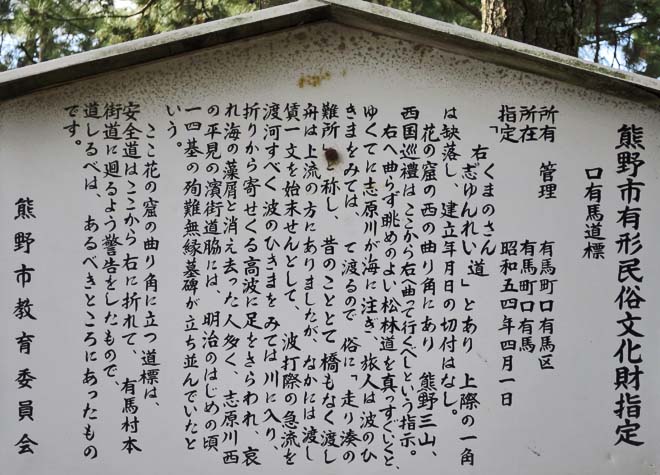 熊野市有形民俗文化財指定
口有馬道標
所有 管理 有馬町口有馬区
所在 有馬町口有馬
指定 昭和五四年四月一日
「くまのさん
右志ゆんれい」とあり 上際の一角
は缺落し、建立年月日の切付はなし。
花の窟の西の曲り角にあり 熊野三山、
西国巡禮はここから右へ曲って行くべしという指示。
右へ曲らず眺めのよい松林道を真っすぐいくと、
ゆくてに志原川が海に注ぎ、旅人は波のひ
きまをみては、 て渡るので 俗に「走り湊の
難所 と称し、昔のこととて橋もなく渡し
舟は上流の方にありましたが、なかには渡し
賃一文を始末せんとして、波打際の急流を
渡河すべく波のひきまをみては川に入り、
折りから寄せくる高波に足をさらわれ、哀
れ海の藻屑と消え去った人多く、志原川西
の平見の濱街道脇には、明治のはじめの頃
一四基の殉難無縁墓碑が立ち並んでいたと
いう。
ここ花の窟の曲り角に立つ道標は、
安全道はここから右に折れて、有馬村本
街道に廻るよう警告をしたもので、
道しるべは、あるべきところにあったもの
です。
熊野市教育委員会